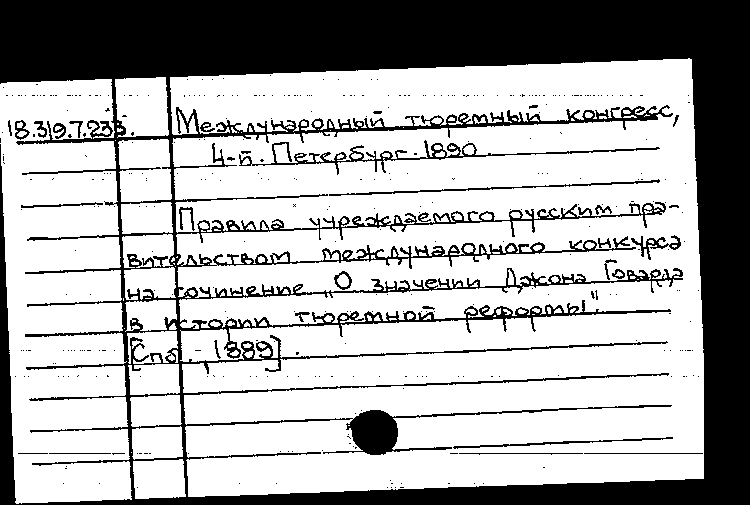 18.319.7.233. Международный тюремный конгресс,
4-й. Петербург. 1890
Правила учреждаемого русским пра-
вительством международного конкурса
на сочинение „О значении Джона Говарда
в истории тюремной реформы".
[Спб., 1889].